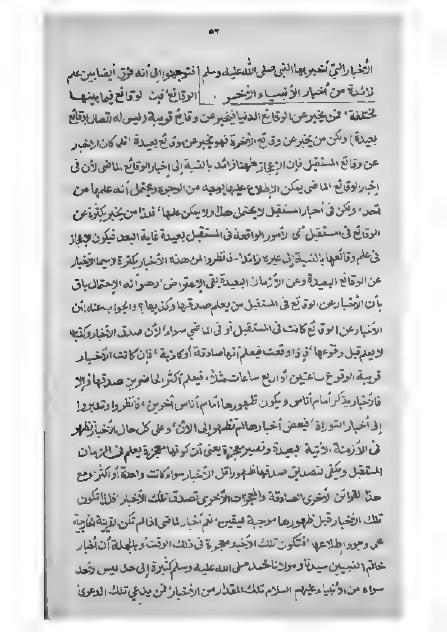 ٥٢
الأخبار التي تُغير بها النبي صلى الله عليه وسلم فتوجهوا إلى أنه فرق أيضا بين علم
زائدة من أخبار الأنبياء الأخر . الوقائع فبين لوقائع فيما بينها
مختلفة فمن يخبر عن الوقائع الدنيا فيخبر عن وقائع قريبة وليس له اتصال بوقائع
بعيدة ولكن من يخبر عن وقائع الآخرة فهو يخبر عن وقائع بعيدة فلو كان الإخبار
عن وقائع المستقبل فإن الإعجاز ههنا زائد بالنسبة إلى إخبار الوقائع الماضي لأن في
إخبار الوقائع الماضي يمكن الإطلاع عليها بوجه من الوجوه ويحتمل أنه علمها من
أحد ولكن في أخبار المستقبل لا يحتمل هذا ولا يمكن علمها فمن يخبر بكثرة عن
الوقائع في المستقبل أي الأمور الواقعة في المستقبل بعيدة غاية البعد فيكون الإعجاز
في علم وقائعها بالنسبة إلى غيره زائدا فانظروا من هذه الأخبار بكثرة لا سيما الأخبار
عن الوقائع البعيدة وعن الأزمان البعيدة بقي الإعتراض وهو أنه الإحتمال باق
بأن الأخبار عن الوقائع في المستقبل من يعلم صدقها وكذبها؟ والجواب عنه أن
الأخبار عن الوقائع كانت في المستقبل أو في الماضي سواء لأن صدق الأخبار وكذبها
لا يعلم قبل وقوعها فإذا وقعت فيعلم أنها صادقة أو كاذبة فإن كانت الأخبار
قريبة الوقوع ساعتين أو أربع ساعات مثلاً فيعلم أكثر الحاضرين صدقها وإلا
فالأخبار يذكر أمام أناس ويكون ظهورها أمام أناس آخرين فانظروا وتدبروا
إلى أخبار التوراة فبعض أخبارها لم تظهر إلى الآن وعلى كل حال الأخبار تظهر
في الأزمنة الآتية البعيدة وتصير معجزة يعني أن كونها معجزة يعلم في الزمان
المستقبل ويكفي لتصديق صدقها ظهور أقل الأخبار سواء كانت واحدة أو أكثر ومع
هذا القرائن الأخرى الصادقة والمعجزات الأخرى تصدق تلك الأخبار فلذا تكون
تلك الأخبار قبل ظهورها موجبة لليقين نعم أخبار الماضي إذا لم تكن لقرينة الخارجية
على وجود إطلاعها فتكون تلك الأخبار معجزة في ذلك الوقت أو بالجملة أن أخبار
خاتم النبيين سيدنا ومولانا محمد صلى الله عليه وسلم كثيرة إلى حد ليس لأحد
سواه من الأنبياء وعليهم السلام تلك المقدار من الأخبار فمن يدعي تلك الدعوى